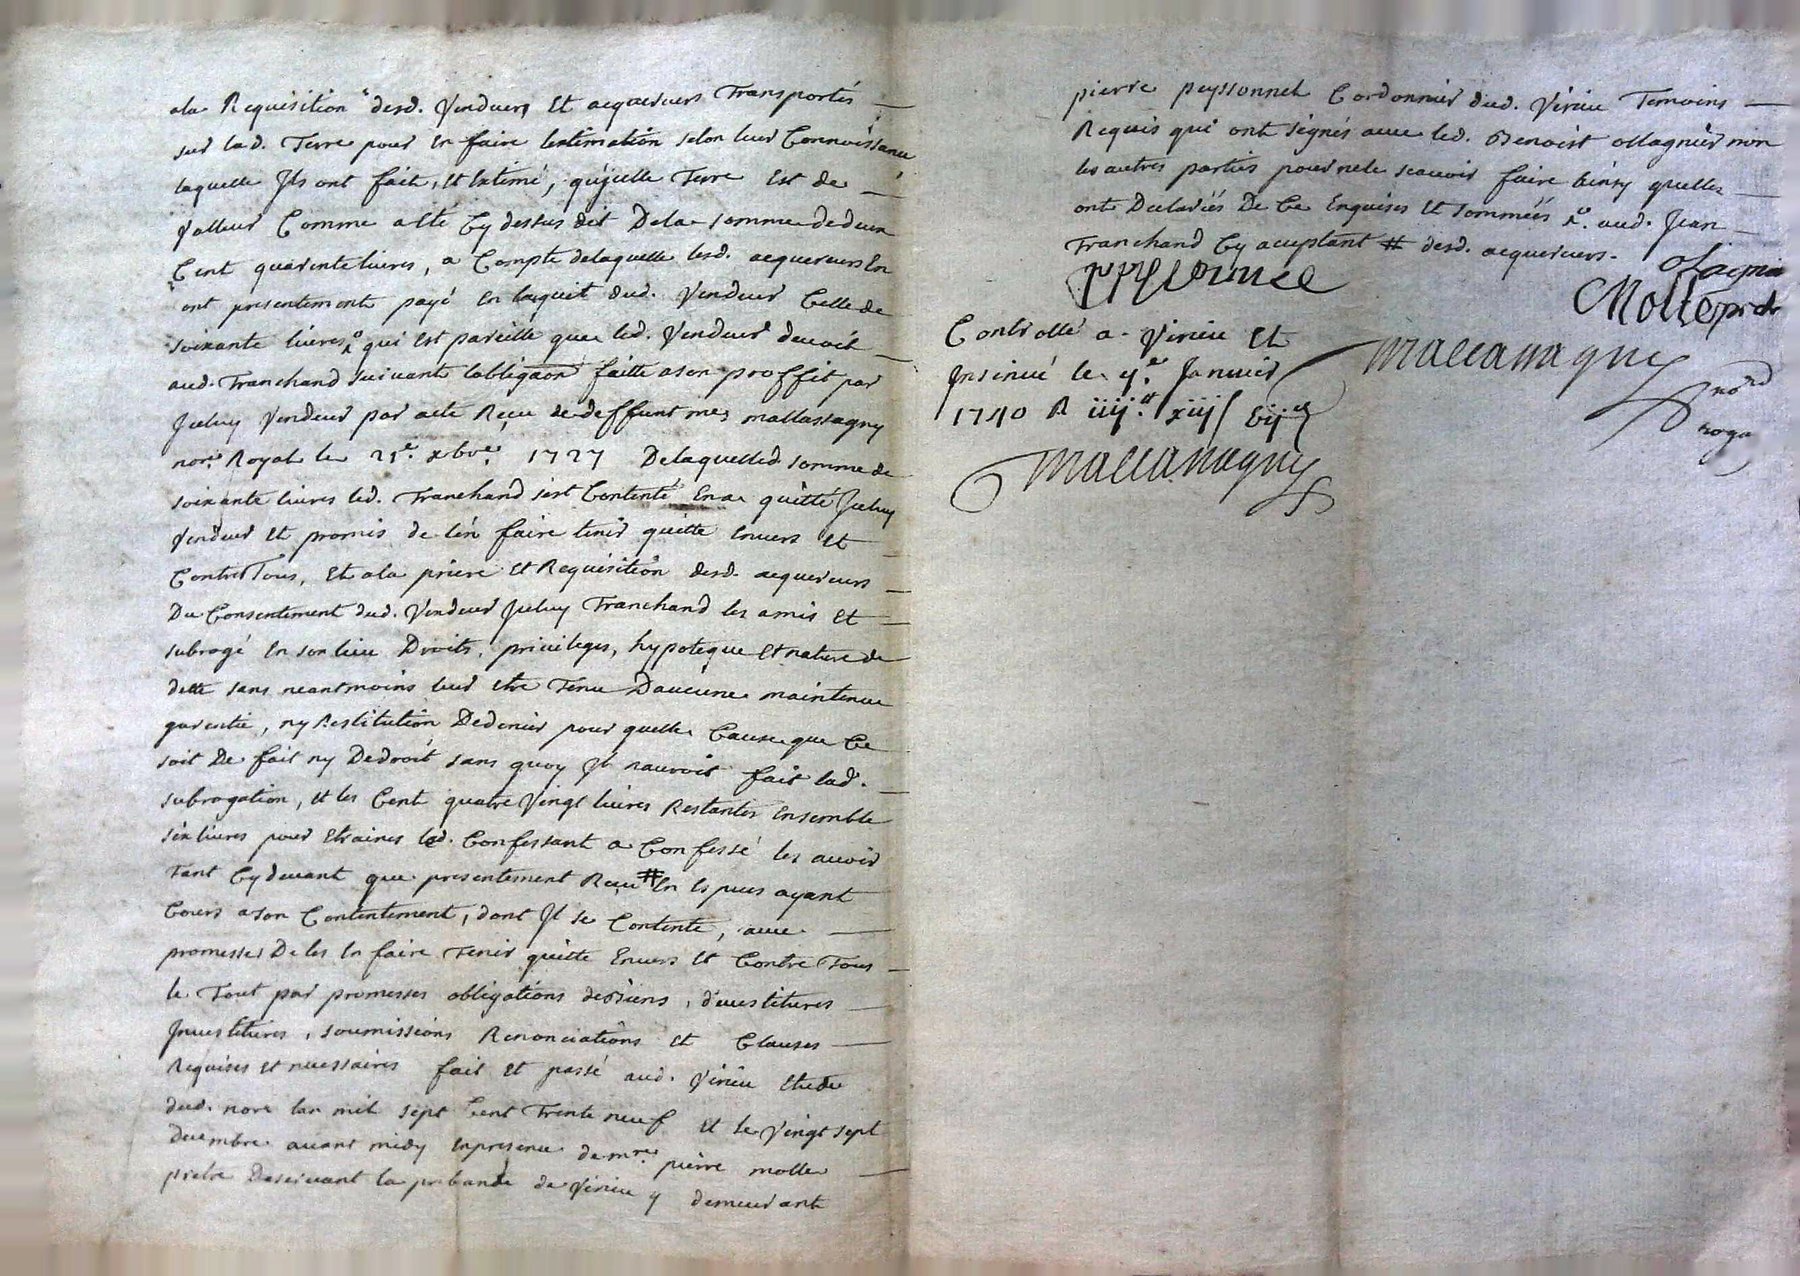 ala Requisition desd. Vendeurs Et acquereurs Transportés
sur lad. Terre pour En faire lextimation selon leur Connoissance
laquelle Ils ont faite, Et Extimé, qu'jcelle Terre Est de
Valleur Comme a Eté Cy dessus dit De la somme de deux
Cent quarente livres, a Compte de laquelle lesd. acquereurs En
ont presentement payé En lacquit dud. Vendeur Celle de
soixante livres qui Est pareille que led. Vendeur devoit
aud. Tranchand suivant lobligaon faitte a son proffit par
Jceluy Vendeur par acte Reçu de deffunt me mallassagny
nore. Royal le 21e. xbre. 1727 De laquelle d. somme de
soixante livres led. Tranchand s'est Contenté En a quitté Jceluy
Vendeur et promis de l'en faire tenir quitte Envers Et
Contre Tous, Et a la priere et Requisition desd. acquereurs
Du Consentement dud. Vendeur Jceluy Tranchand les a mis Et
subrogé En son lieu Droits, privileges, hypoteque Et nature de
dette sans neantmoins leur etre Tenu D'aucune maintenue
garentie, ny Restitution De denier pour quelle Cause que Ce
soit De fait ny De droit sans quoy Jl n'auroit fait lad.
subrogation, Et les Cent quatre Vingt livres Restantes Ensemble
six livres pour Etraines led. Confessant a Confessé les avoir
Tant Cy devant que presentement Reçu # En Especes ayant
Cours a son Contentement, dont Jl se Contente, avec
promesses De les En faire Tenir quitte Envers Et Contre Tous
le Tout par promesses obligations de biens, devestitures
Jnvestitures, soumissions Renonciations Et Clauses
Requises et necessaires fait Et passé aud. Virieu Etude
dud. nore lan mil sept Cent Trente neuf Et le Vingt sept
decembre avant midy En presence de mre. pierre molle
pretre Desservant la prebande de Virieu y demeurant
pierre peyssonnel Cordonnier dud. Virieu Temoins
Requis qui ont signés avec led. Benoist ollagnier non
les autres parties pour ne le sçavoir faire Ainsy quelles
ont Declarées De Ce Enquises Et sommées aud. Jean
Tranchand Cy acceptant # desd. acquereurs.
olagnie
Molle pretre
Controllé a Virieu Et
Jnsinué le Janvier
1740 R iiij xiij
mallassagny
mallassagny